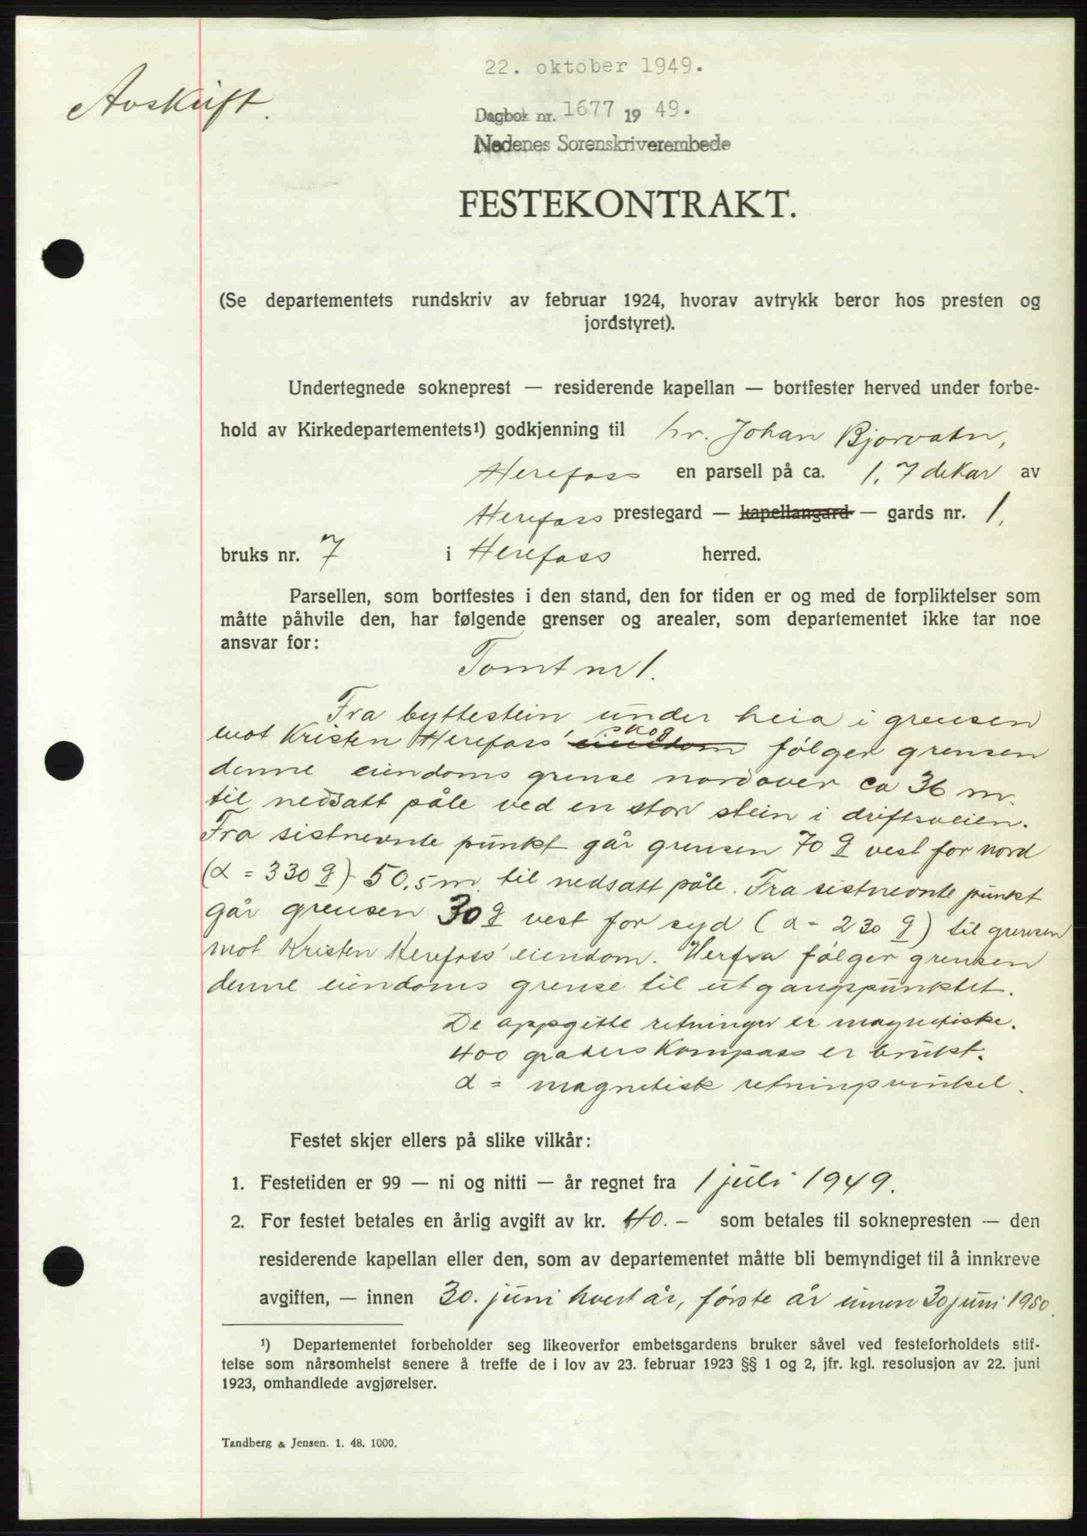 22. oktober 1949.
Avskrift.
Dagbok nr. 1677 19 49.
Nedenes Sorenskriverembede
FESTEKONTRAKT.
(Se departementets rundskriv av februar 1924, hvorav avtrykk beror hos presten og
jordstyret).
Undertegnede sokneprest — residerende kapellan — bortfester herved under forbe-
hold av Kirkedepartementets¹) godkjenning til hr. Johan Bjorvatn,
Herefoss en parsell på ca. 1,7 dekar av
Herefoss prestegard — kapellangard — gards nr. 1,
bruks nr. 7 i Herefoss herred.
Parsellen, som bortfestes i den stand, den for tiden er og med de forpliktelser som
måtte påhvile den, har følgende grenser og arealer, som departementet ikke tar noe
ansvar for:
Tomt nr 1.
Fra byttestein under heia i grensen
mot Kristen Herefoss' eiendom skog følger grensen
denne eiendoms grense nordover ca 36 m.
til nedsatt påle ved en stor stein i driftsveien.
Fra sistnevnte punkt går grensen 70 g vest for nord
(α = 330 g) 50,5 m. til nedsatt påle. Fra sistnevnte punkt
går grensen 30 g vest for syd (α = 230 g) til grensen
mot Kristen Herefoss' eiendom. Herfra følger grensen
denne eiendoms grense til utgangspunktet.
De oppgitte retninger er magnetiske.
400 graders kompass er brukt.
α = magnetisk retningsvinkel.
Festet skjer ellers på slike vilkår:
1. Festetiden er 99 — ni og nitti — år regnet fra 1 juli 1949.
2. For festet betales en årlig avgift av kr. 40.- som betales til soknepresten — den
residerende kapellan eller den, som av departementet måtte bli bemyndiget til å innkreve
avgiften, — innen 30. juni hvert år, første år innen 30 juni 1950.
¹) Departementet forbeholder seg likeoverfor embetsgardens bruker såvel ved festeforholdets stif-
telse som nårsomhelst senere å treffe de i lov av 23. februar 1923 §§ 1 og 2, jfr. kgl. resolusjon av 22. juni
1923, omhandlede avgjørelser.
Tandberg & Jensen. 1. 48. 1000.